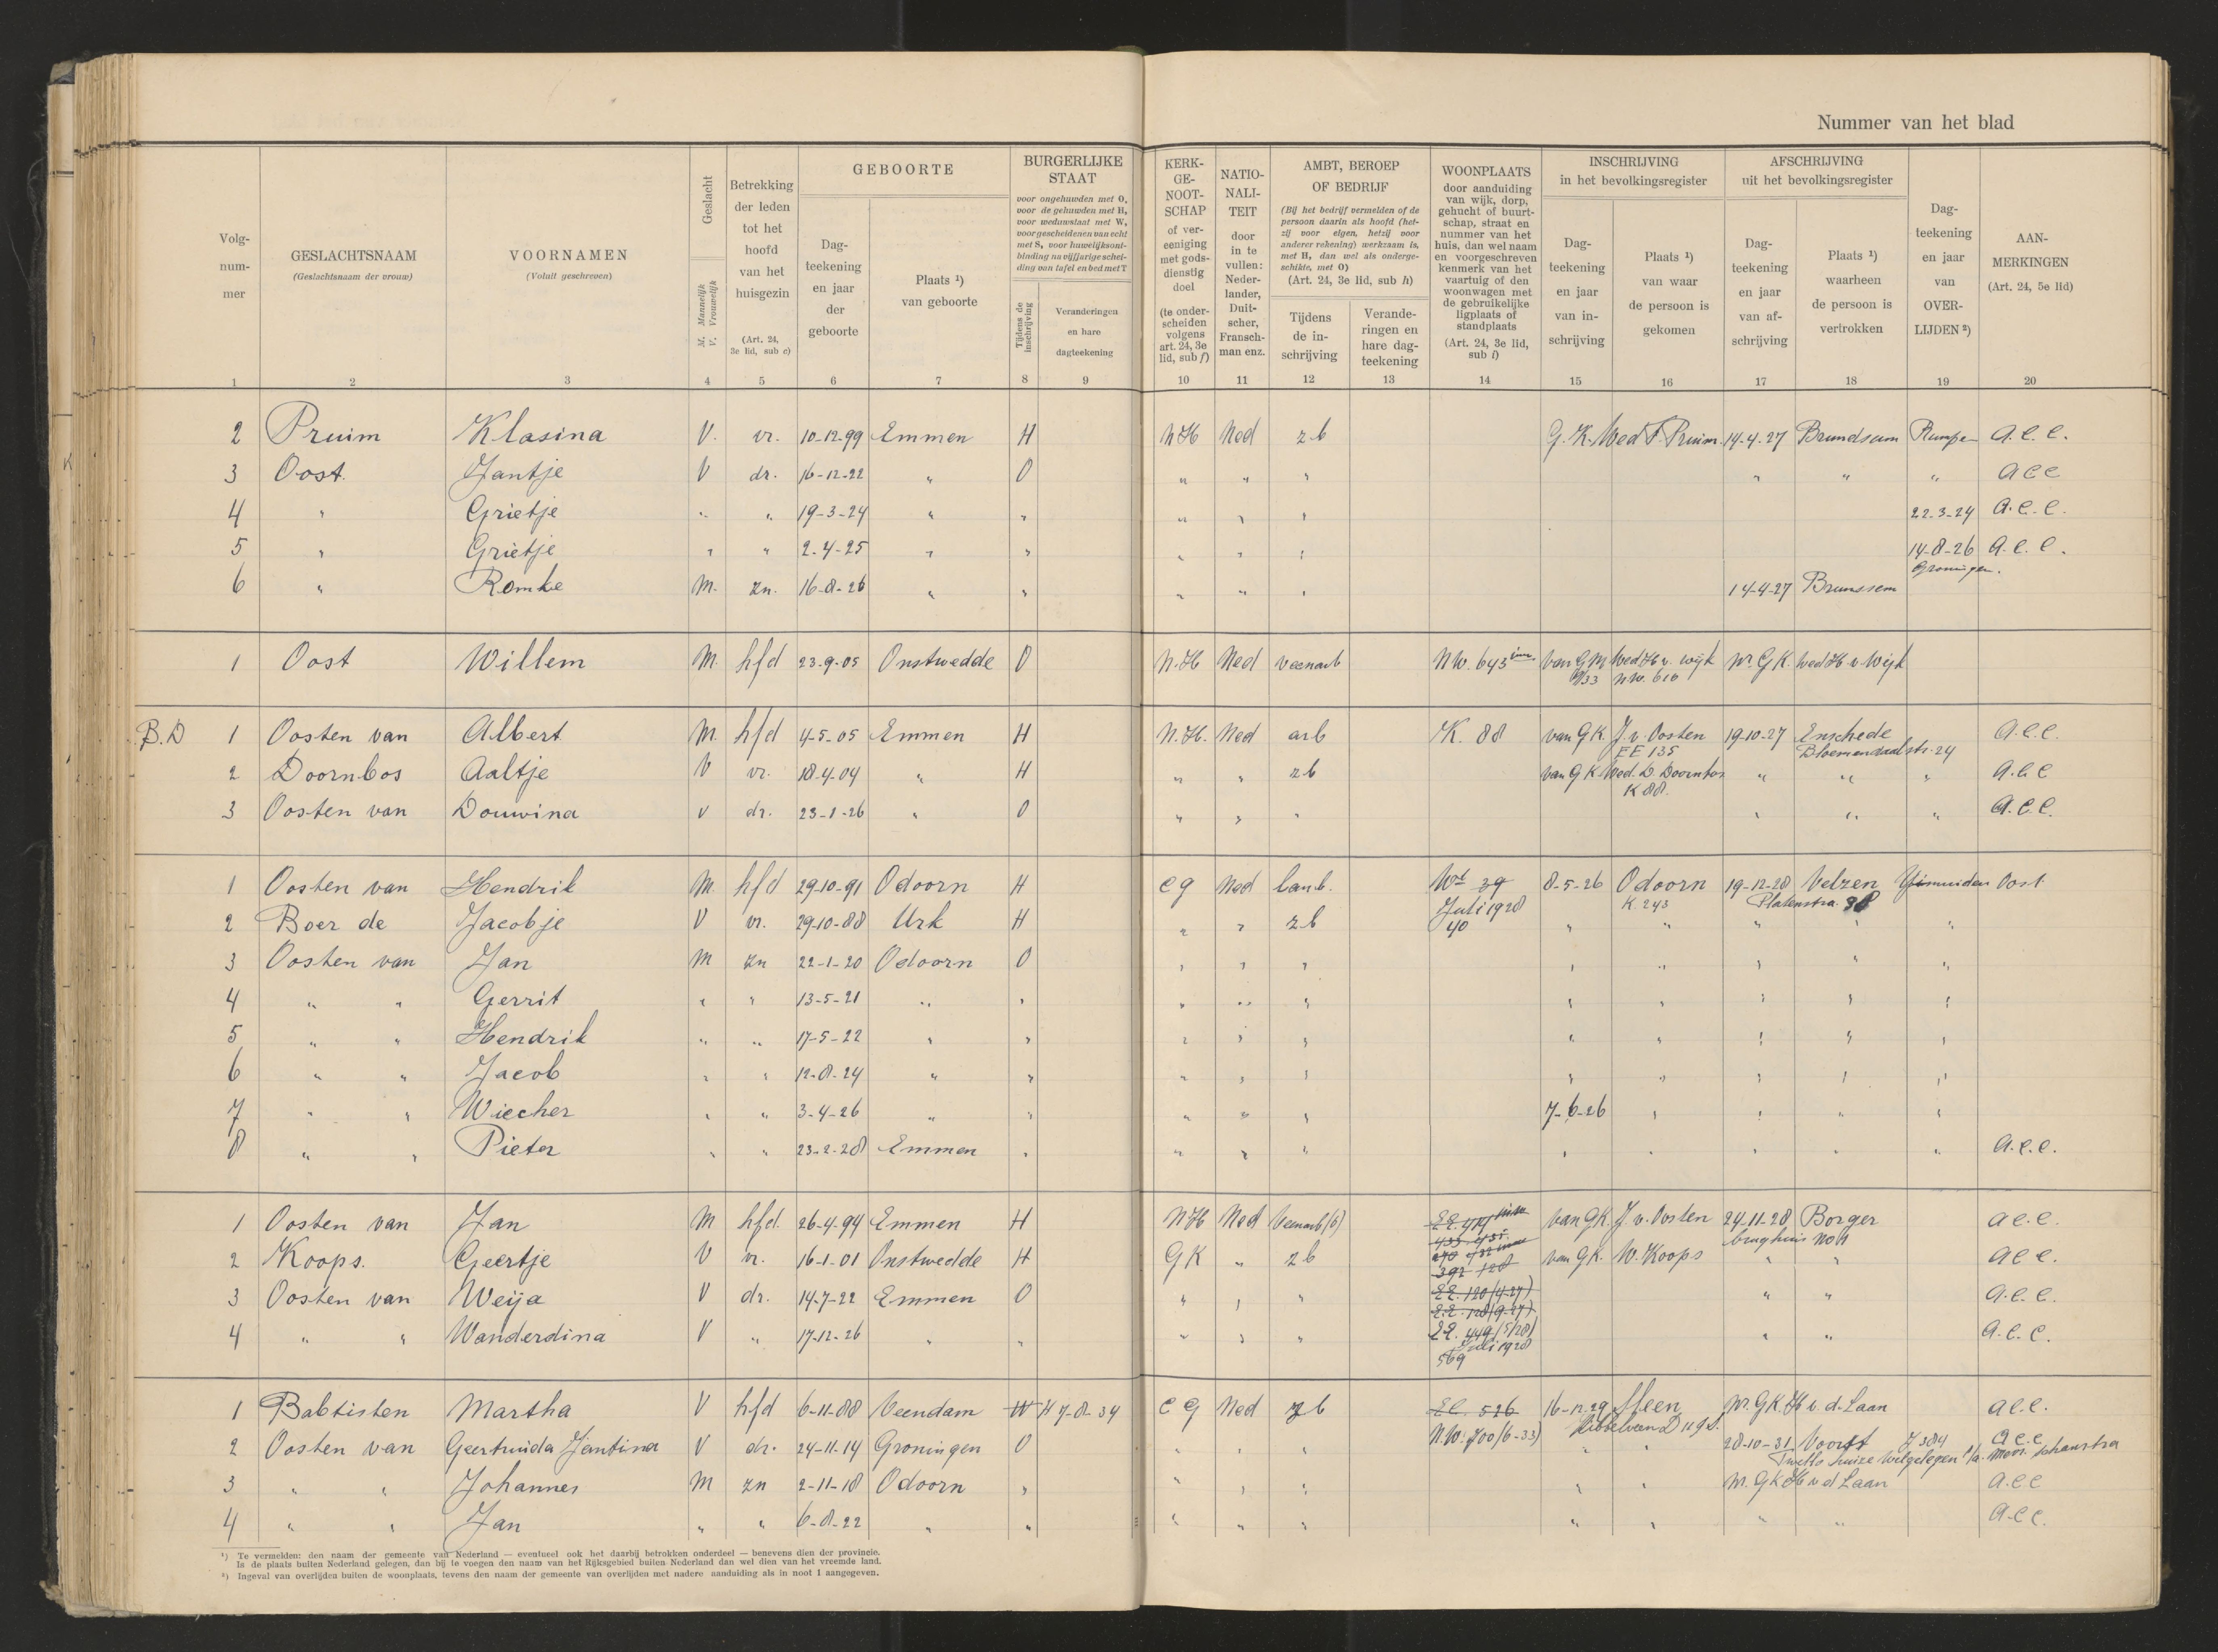 Nummer van het blad
Volg-
num-
mer
GESLACHTSNAAM
(Geslachtsnaam der vrouw)
VOORNAMEN
(Voluit geschreven)
Geslacht
M. Mannelijk
V. Vrouwelijk
Betrekking
der leden
tot het
hoofd
van het
huisgezin
(Art. 24,
3e lid, sub c)
GEBOORTE
Dag-
teekening
en jaar
der
geboorte
Plaats ¹)
van geboorte
BURGERLIJKE
STAAT
voor ongehuwden met O,
voor de gehuwden met H,
voor weduwstaat met W,
voor gescheidenen van echt
met S, voor huwelijksont-
binding na vijfjarige schei-
ding van tafel en bed met T
Tijdens de
inschrijving
Veranderingen
en hare
dagteekening
KERK-
GE-
NOOT-
SCHAP
of ver-
eeniging
met gods-
dienstig
doel
(te onder-
scheiden
volgens
art. 24, 3e
lid, sub f)
NATIO-
NALI-
TEIT
door
in te
vullen:
Neder-
lander,
Duit-
scher,
Fransch-
man enz.
AMBT, BEROEP
OF BEDRIJF
(Bij het bedrijf vermelden of de
persoon daarin als hoofd (het-
zij voor eigen, hetzij voor
anderer rekening) werkzaam is,
met H, dan wel als onderge-
schikte, met O)
(Art. 24, 3e lid, sub h)
Tijdens
de in-
schrijving
Verande-
ringen en
hare dag-
teekening
WOONPLAATS
door aanduiding
van wijk, dorp,
gehucht of buurt-
schap, straat en
nummer van het
huis, dan wel naam
en voorgeschreven
kenmerk van het
vaartuig of den
woonwagen met
de gebruikelijke
ligplaats of
standplaats
(Art. 24, 3e lid,
sub i)
INSCHRIJVING
in het bevolkingsregister
Dag-
teekening
en jaar
van in-
schrijving
Plaats ¹)
van waar
de persoon is
gekomen
AFSCHRIJVING
uit het bevolkingsregister
Dag-
teekening
en jaar
van af-
schrijving
Plaats ¹)
waarheen
de persoon is
vertrokken
Dag-
teekening
en jaar
van
OVER-
LIJDEN ²)
AAN-
MERKINGEN
(Art. 24, 5e lid)
1 2 3 4 5 6 7 8 9 10 11 12 13 14 15 16 17 18 19 20
2 Pruim Klasina V. vr. 10-12-99 Emmen H N H Ned z b G. K. Wed F. Pruim 14-4-27 Brundsum Rumpe a.c.c.
3 Oost Jantje V dr. 16-12-22 " O " " " " " " a c c
4 " Grietje " " 19-3-24 " " " " " 22-3-24 a.c.c.
5 " Grietje " " 2-4-25 " " " " " 14-8-26 a.c.c.
Groningen.
6 " Romke M. zn. 16-8-26 " " " " " 14-4-27 Brunssem
1 Oost Willem M. hfd 23-9-05 Onstwedde O N.H Ned veenarb NW. 643 inw. van G M Wed H v. wijk Nr. G K. wed H v Wijk
33 NW. 610
B.D 1 Oosten van Albert M hfd 4-5-05 Emmen H N.H. Ned arb K. 88 van G K. J. v. Oosten 19-10-27 Enschede a.c.c.
EE 135 Bloemendaalstr. 24
2 Doornbos Aaltje V vr. 18-4-04 " H " " z b van G K Wed. D. Doornbos " " " a.c.c
K 88.
3 Oosten van Douwina v dr. 23-1-26 " O " " " " " " a.c.c.
1 Oosten van Hendrik M hfd 29-10-91 Odoorn H c g Ned lanb. 39 8-5-26 Odoorn 19-12-28 Velzen IJmuiden Oost
K 243 Platenstra. 38
2 Boer de Jacobje V vr. 29-10-88 Urk H " " z b Juli 1928 " " " " "
40
3 Oosten van Jan M zn 22-1-20 Odoorn O " " " " " " " "
4 " " Gerrit " " 13-5-21 " " " " " " " " " "
5 " " Hendrik " " 17-5-22 " " " " " " " " " "
6 " " Jacob " " 12-8-24 " " " " " " " " " "
7 " " Wiecher " " 3-4-26 " " " " " 7-6-26 " " " "
8 " " Pieter " " 23-2-28 Emmen " " " " " " " " " a.c.c.
1 Oosten van Jan M hfd. 26-4-94 Emmen H N H Ned Veenarb (6) van G K. J. v. Oosten 24-11-28 Borger a c.c.
brughuis No 11
2 Koops. Geertje V vr. 16-1-01 Onstwedde H G K " z b 392 128 van G K. W. Koops " " a c c.
3 Oosten van Weija V dr. 14-7-22 Emmen O " " " EE. 120 (4-27) " " a.c.c.
EE. 128 (9-27)
4 " " Wanderdina V " 17-12-26 " " " " " EE. 449 (5/28) " " a.c.c.
Juli 1928
569
1 Babtisten Martha V hfd 6-11-88 Veendam W H 7-8-34 C G Ned z b EE. 526 16-12-29 Sleen Nr. G K H v. d. Laan a c.c.
N.W. 700 (6-33)
2 Oosten van Geertruida Jantina V dr. 24-11-14 Groningen O " " " " " 28-10-31 Voorst J 384 a c.c
Twello huize Welgelegen
3 " " Johannes M zn 2-11-18 Odoorn " " " " " " Nr. G K H v d Laan a.c.c
4 " " Jan " " 6-8-22 " " " " " " " " " a.c.c.
¹) Te vermelden: den naam der gemeente van Nederland — eventueel ook het daarbij betrokken onderdeel — benevens dien der provincie.
Is de plaats buiten Nederland gelegen, dan bij te voegen den naam van het Rijksgebied buiten Nederland dan wel dien van het vreemde land.
²) Ingeval van overlijden buiten de woonplaats, tevens den naam der gemeente van overlijden met nadere aanduiding als in noot 1 aangegeven.